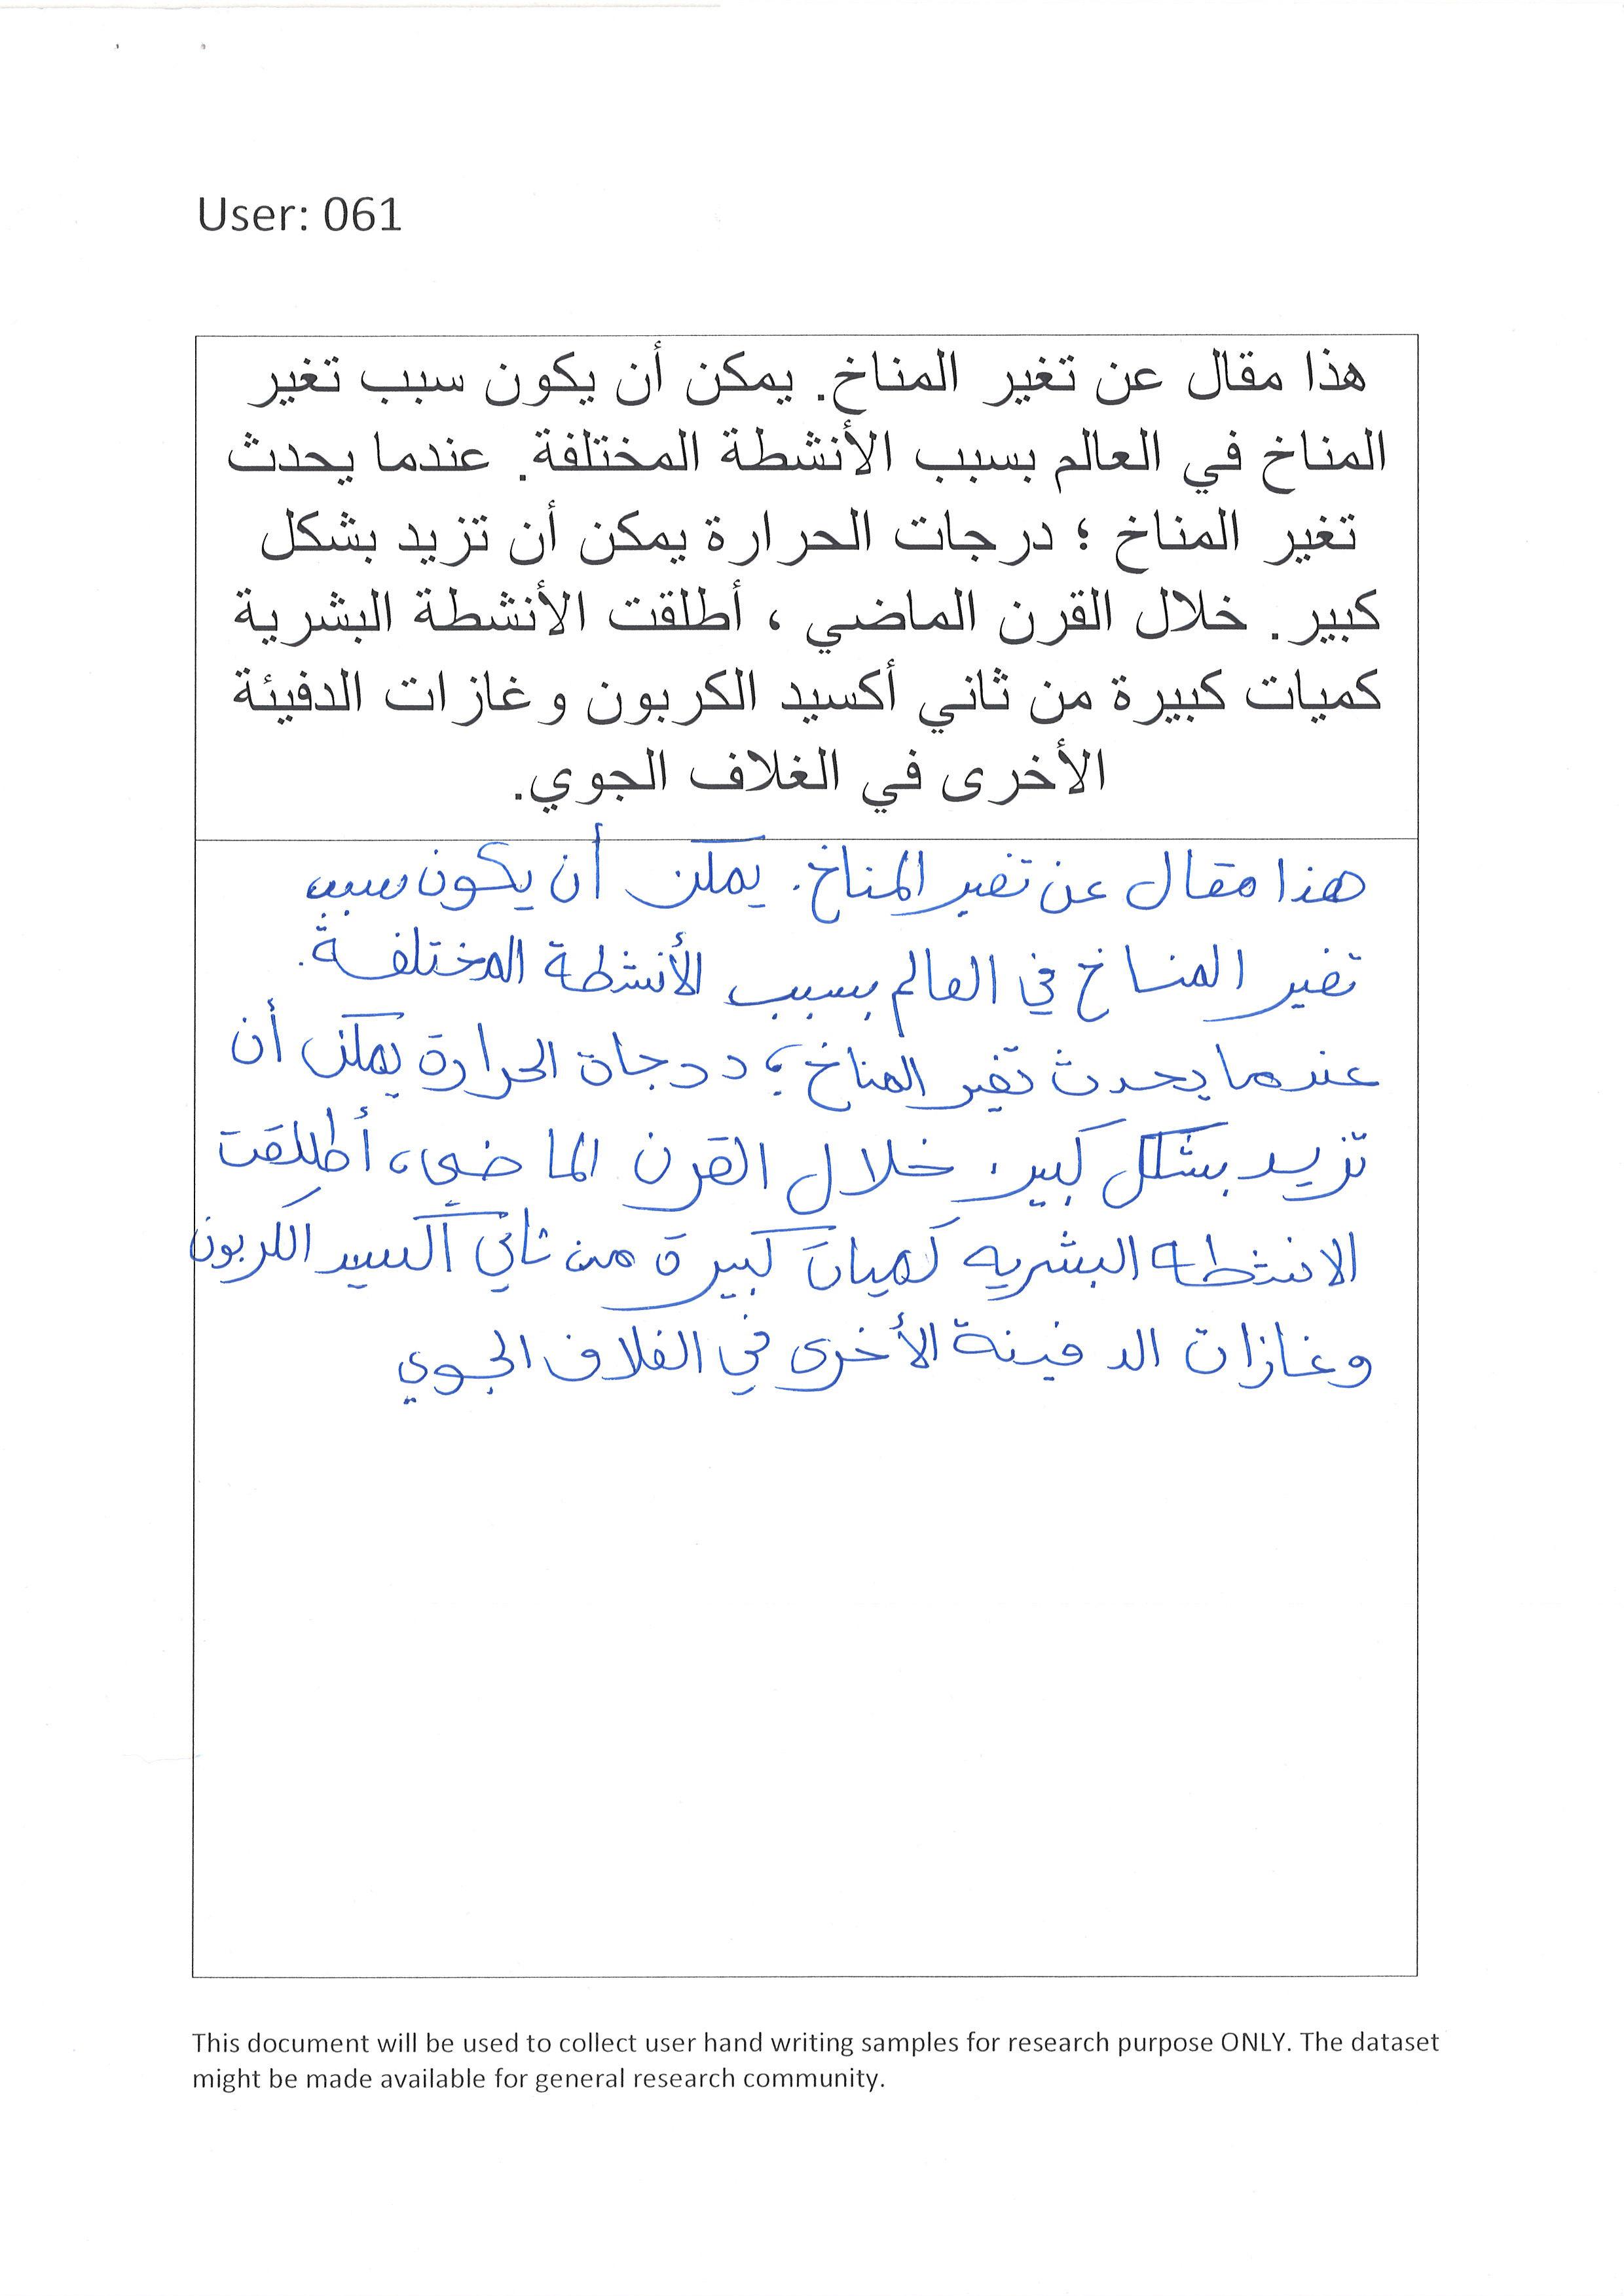 User: 061
هذا مقال عن تغير المناخ. يمكن أن يكون سبب تغير
المناخ في العالم بسبب الأنشطة المختلفة. عندما يحدث
تغير المناخ ؛ درجات الحرارة يمكن أن تزيد بشكل
كبير. خلال القرن الماضي ، أطلقت الأنشطة البشرية
كميات كبيرة من ثاني أكسيد الكربون وغازات الدفيئة
الأخرى في الغلاف الجوي.
هذا مقال عن تغير المناخ. يمكن أن يكون سبب
تغير المناخ في العالم بسبب الأنشطة المختلفة.
عندما يحدث تغير المناخ ؛ درجاة الحرارة يمكن أن
تزيد بشكل كبير. خلال القرن الماضي، أطلقت
الانشطه البشريه كميات كبيرة من ثاني أكسيد الكربون
وغازات الدفينة الأخرى في الغلاف الجوي
This document will be used to collect user hand writing samples for research purpose ONLY. The dataset
might be made available for general research community.